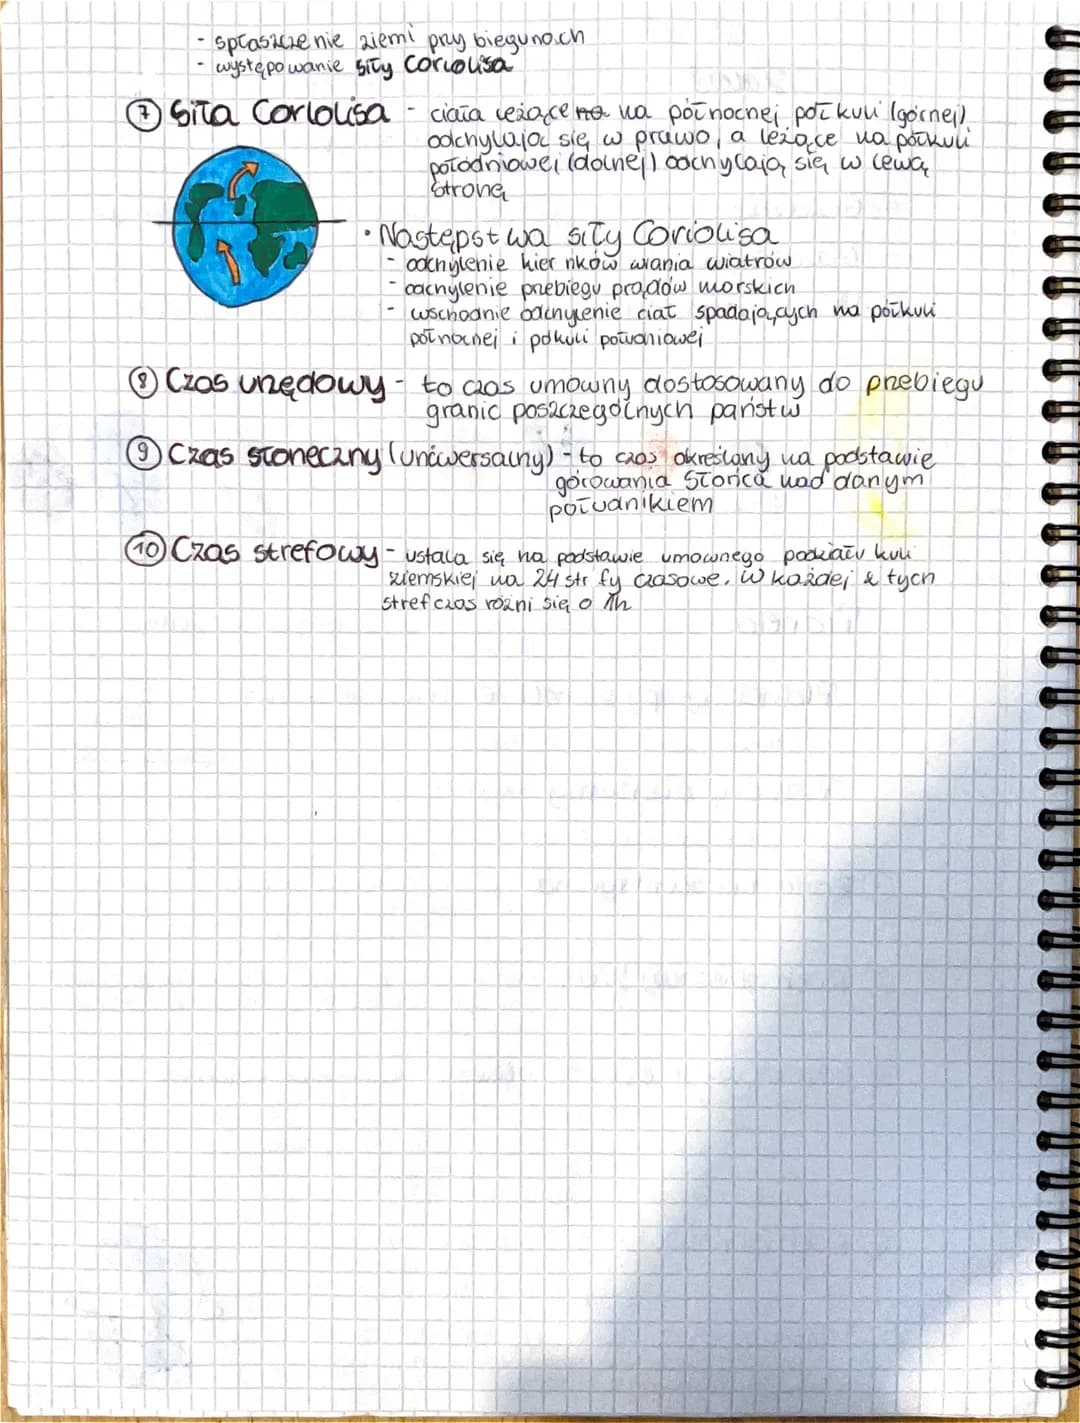 - spłaszczenie ziemi przy biegunach
- występowanie siły Coriolisa
⑦ Siła Coriolisa - ciała leżące na północnej półkuli (górnej)
odchylając się w prawo, a leżące na półkuli
połodniowej (dolnej) odchylają się w lewą
stronę
• Następstwa siły Coriolisa
- odchylenie kier nków wiania wiatrów
- odchylenie przebiegu prądów morskich
- wschodnie odchylenie ciał spadających na półkuli
północnej i półkuli południowej
⑧ Czas urzędowy - to czas umowny dostosowany do przebiegu
granic poszczególnych państw
⑨ Czas słoneczny (uniwersalny) - to czas określany na podstawie
górowania Słońca nad danym
południkiem
⑩ Czas strefowy - ustala się na podstawie umownego podziału kuli
ziemskiej na 24 str fy czasowe. W każdej z tych
stref czas różni się o 1h